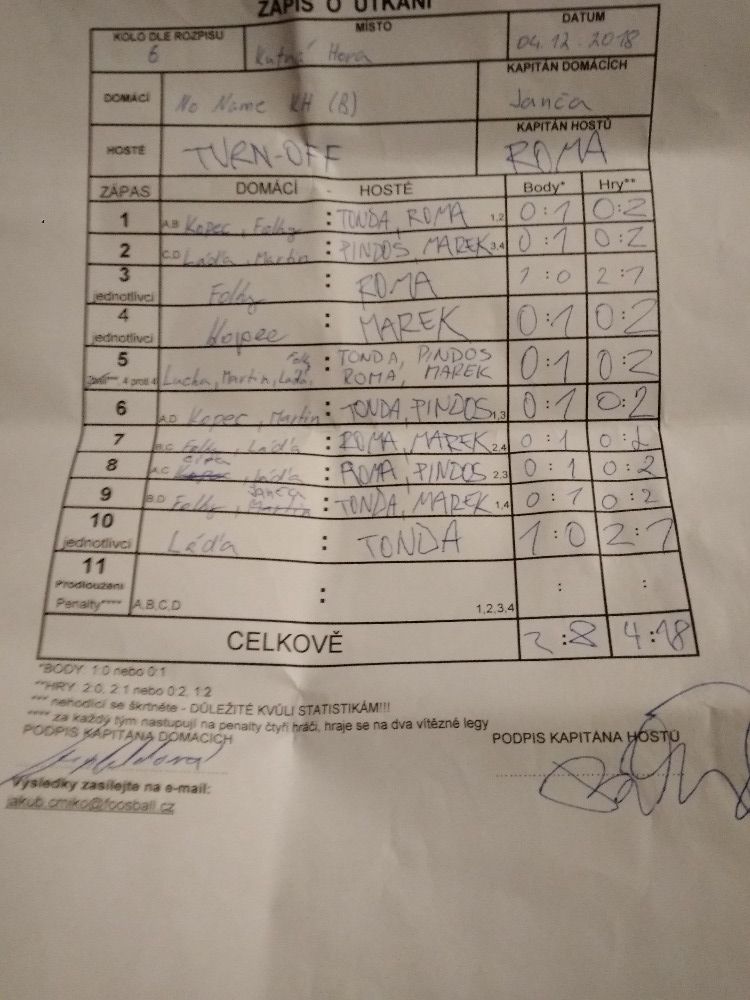 ZÁPIS O UTKÁNÍ
KOLO DLE ROZPISU MÍSTO DATUM
6 Kutná Hora 04.12.2018
DOMÁCÍ No Name KH (B) KAPITÁN DOMÁCÍCH Janča
HOSTÉ TURN-OFF KAPITÁN HOSTŮ ROMA
ZÁPAS DOMÁCÍ - HOSTÉ Body* Hry**
1 A,B Kopec, Folky : TONDA, ROMA 1,2 0:1 0:2
2 C,D Láďa, Martin : PINDOS, MAREK 3,4 0:1 0:2
3 jednotlivci Folky : ROMA 1:0 2:1
4 jednotlivci Kopec : MAREK 0:1 0:2
5 4 proti 4 Lucka, Martin, Láďa, Folky : TONDA, PINDOS ROMA, MAREK 0:1 0:2
6 A,D Kopec, Martin : TONDA, PINDOS 1,3 0:1 0:2
7 B,C Folky, Láďa : ROMA, MAREK 2,4 0:1 0:2
8 A,C Láďa : ROMA, PINDOS 2,3 0:1 0:2
9 B,D Folky, Janča : TONDA, MAREK 1,4 0:1 0:2
10 jednotlivci Láďa : TONDA 1:0 2:1
11 Prodloužení Penalty**** A,B,C,D : 1,2,3,4 : :
CELKOVĚ 2:8 4:18
*BODY: 1:0 nebo 0:1
**HRY: 2:0, 2:1 nebo 0:2, 1:2
*** nehodící se škrtněte - DŮLEŽITÉ KVŮLI STATISTIKÁM!!!
**** za každý tým nastupují na penalty čtyři hráči, hraje se na dva vítězné legy
PODPIS KAPITÁNA DOMÁCÍCH PODPIS KAPITÁNA HOSTŮ
Výsledky zasílejte na e-mail:
jakub.cmiko@foosball.cz